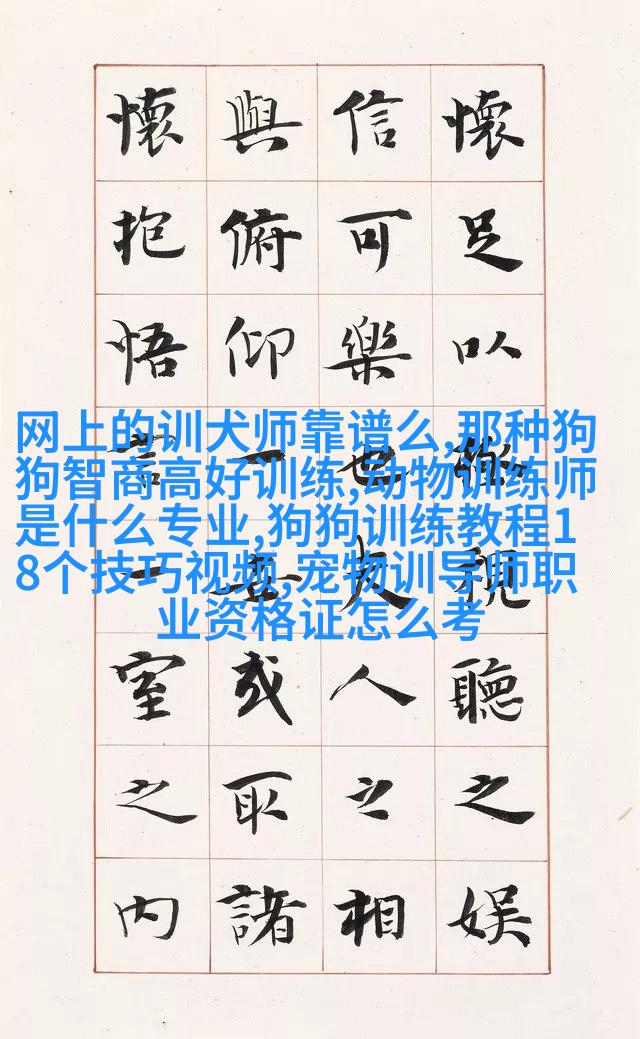 懷足以極視聽之娛
信可樂也夫人之相
與俯仰一世或取諸
懷抱悟言一室之内
网上的训犬师靠谱么,那种狗
狗智商高好训练,动物训练师
是什么专业,狗狗训练教程1
8个技巧视频,宠物训导师职
业资格证怎么考